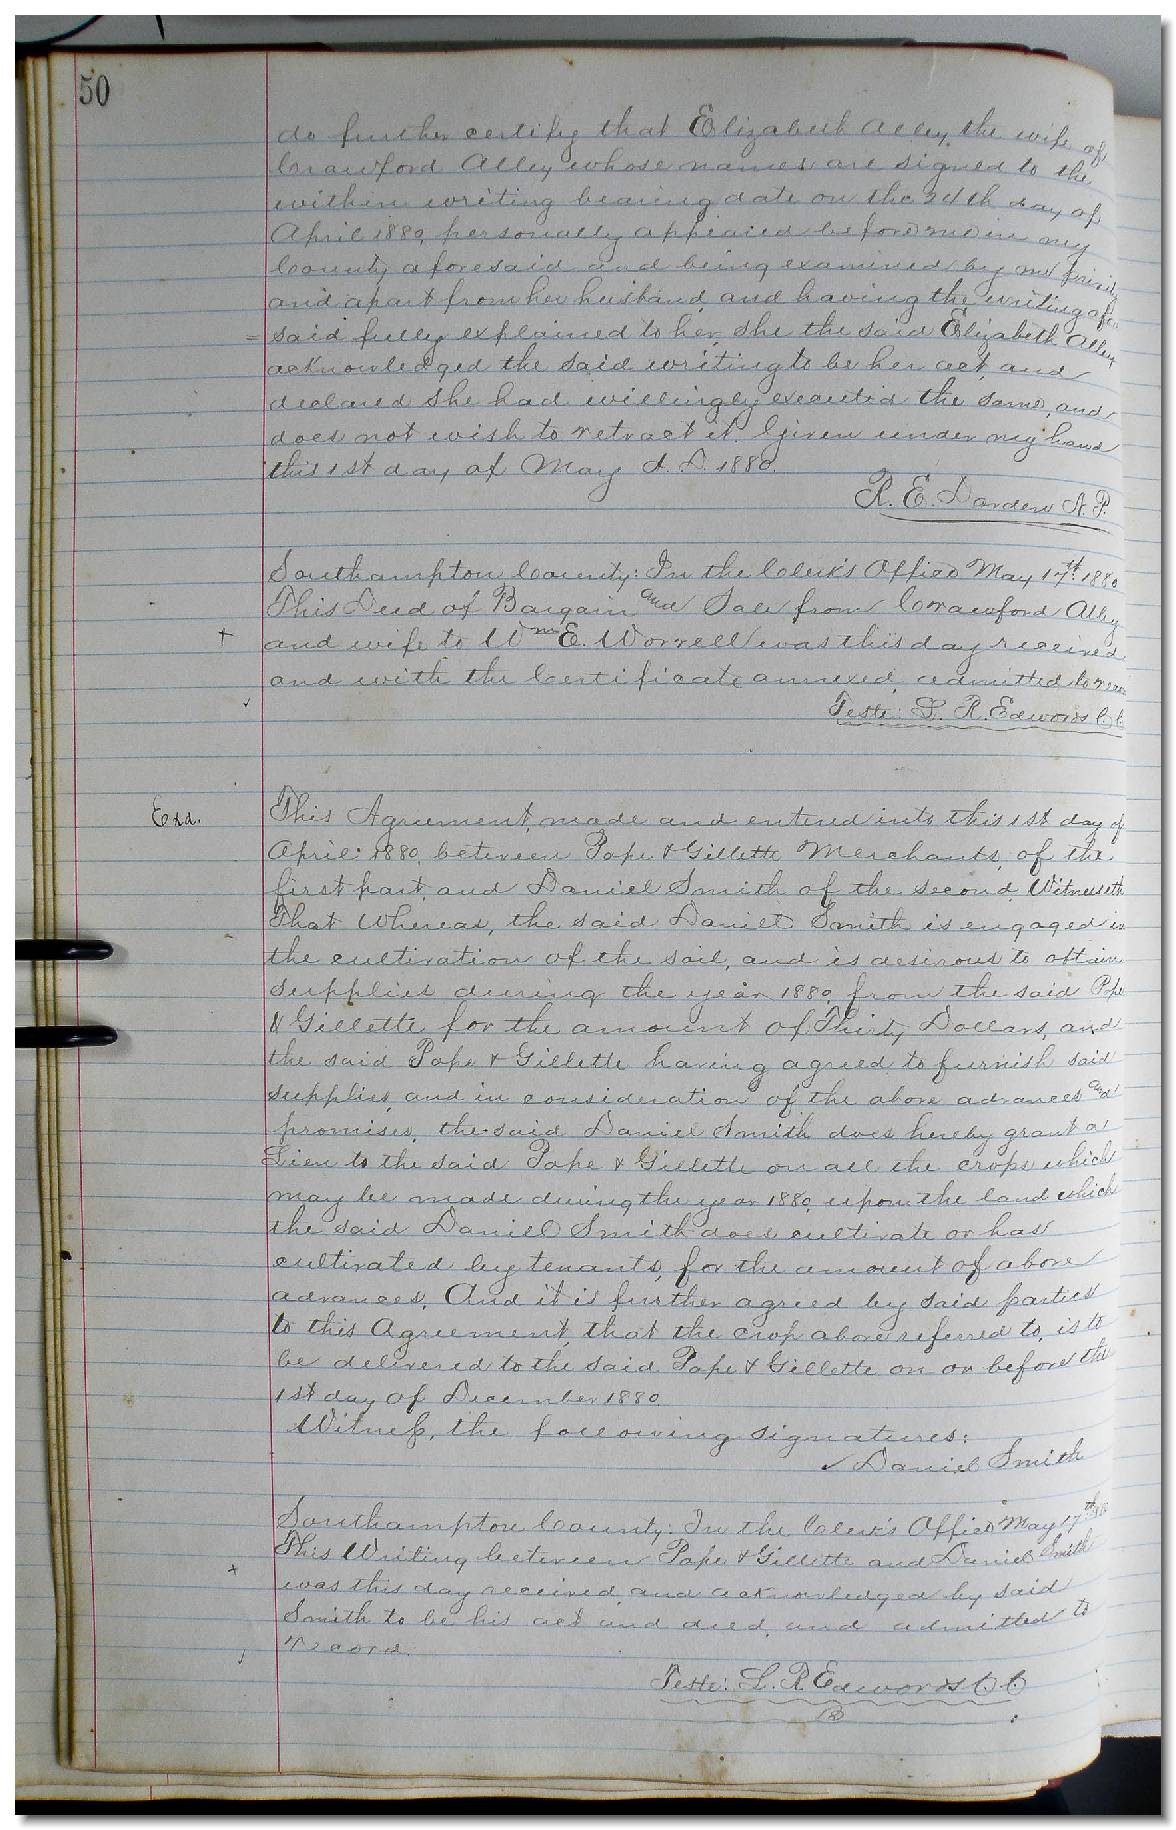 50
do further certify that Elizabeth Alley, the wife of
Crawford Alley whose names are signed to the
within writing bearing date on the 24th day of
April 1880, personally appeared before me in my
County aforesaid and being examined by me privily
and apart from her husband, and having the writing afore
= said fully explained to her, she the said Elizabeth Alley
acknowledged the said writing to be her act, and
declared she had willingly executed the same, and
does not wish to retract it. Given under my hand
this 1st day of May A. D. 1880.
R. E. Darden N. P.
Southampton County: In the Clerk's Office May 17th 1880
This Deed of Bargain and Sale from Crawford Alley
+ and wife to Wm E. Worrell was this day received
and with the Certificate annexed, admitted to
Teste: L. R. Edwards C.C.
Exd.
This Agreement, made and entered into this 1st day of
April 1880, between Pope & Gillette Merchants, of the
first part, and Daniel Smith of the second, Witnesseth
That Whereas, the said Daniel Smith is engaged in
the cultivation of the soil, and is desirous to obtain
supplies during the year 1880, from the said Pope
& Gillette for the amount of Thirty Dollars, and
the said Pope & Gillette having agreed to furnish said
supplies, and in consideration of the above advances and
promises, the said Daniel Smith does hereby grant a
Lien to the said Pope & Gillette on all the crops which
may be made during the year 1880, upon the land which
the said Daniel Smith does cultivate or has
cultivated by tenants, for the amount of above
advances. And it is further agreed by said parties
to this Agreement, that the crop above referred to, is to
be delivered to the said Pope & Gillette on or before the
1st day of December 1880.
Witness, the following signatures:
Daniel Smith
Southampton County: In the Clerk's Office May 17th
This Writing between Pope & Gillette and Daniel Smith
+ was this day received, and acknowledged by said
Smith to be his act and deed, and admitted to
record.
Teste: L. R. Edwards C.C.